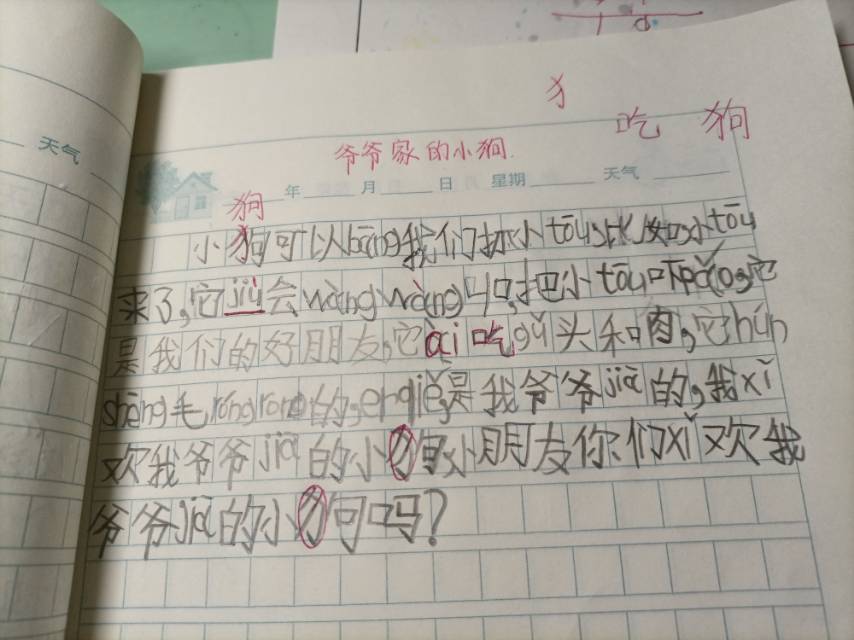 犭
吃 狗
爷爷家的小狗.
天气
年 月 日 星期 天气
狗
小狗可以bāng我们抓小tōu,比如小tōu
来了,它jiù会wàngwàng叫,把小tōu吓pǎo,它
是我们的好朋友,它ài吃gǔ头和肉,它hún
shēng毛róngrong的,erqiě是我爷爷jiā的,我xǐ
欢我爷爷jiā的小狗,小朋友你们xǐ欢我
爷爷jiā的小狗吗?